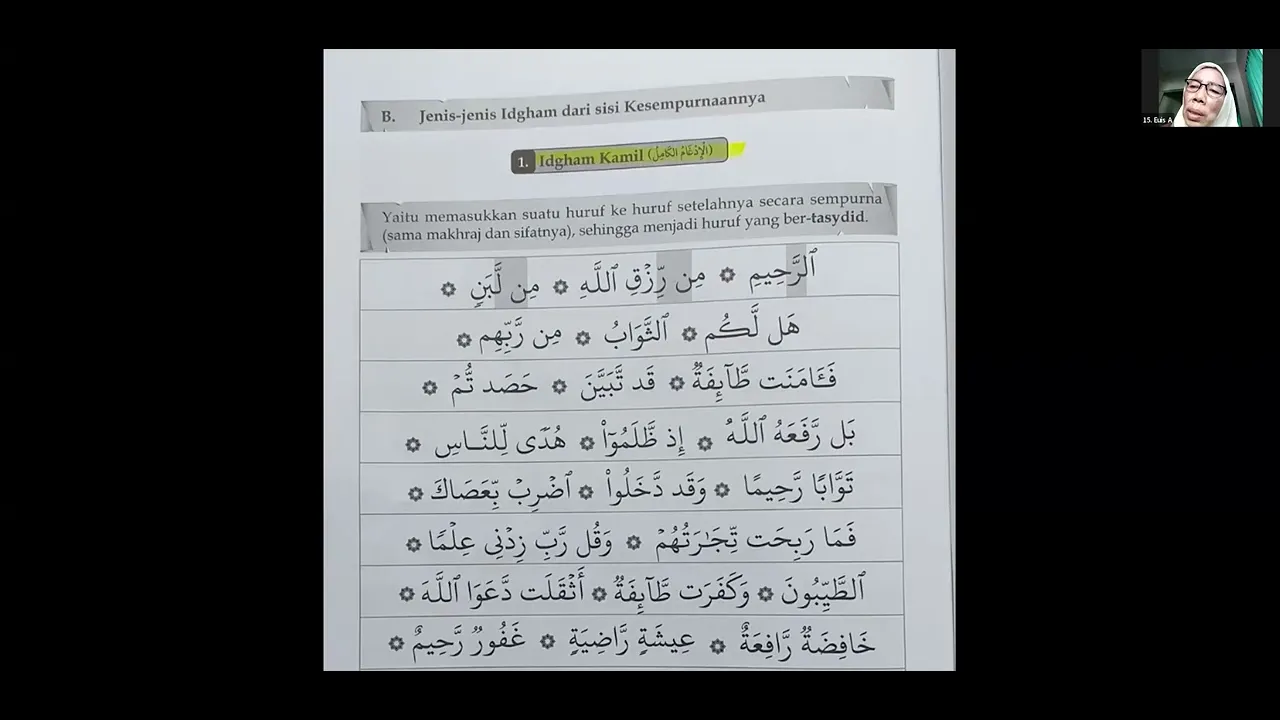 B. Jenis-jenis Idgham dari sisi Kesempurnaannya
1. Idgham Kamil (الْإِدْغَامُ الْكَامِلُ)
Yaitu memasukkan suatu huruf ke huruf setelahnya secara sempurna
(sama makhraj dan sifatnya), sehingga menjadi huruf yang ber-tasydid.
ٱلرَّحِيمِ ۞ مِن رِّزْقِ ٱللَّهِ ۞ مِن لَّبَنٍ ۞
هَل لَّكُم ۞ ٱلثَّوَابُ ۞ مِن رَّبِّهِم ۞
فَـَٔامَنَت طَّآئِفَةٌ ۞ قَد تَّبَيَّنَ ۞ حَصَد تُّمْ ۞
بَل رَّفَعَهُ ٱللَّهُ ۞ إِذ ظَّلَمُوٓا۟ ۞ هُدًى لِّلنَّاسِ ۞
تَوَّابًا رَّحِيمًا ۞ وَقَد دَّخَلُوا۟ ۞ ٱضْرِبْ بِّعَصَاكَ ۞
فَمَا رَبِحَت تِّجَـٰرَتُهُمْ ۞ وَقُل رَّبِّ زِدْنِى عِلْمًا ۞
ٱلطَّيِّبُونَ ۞ وَكَفَرَت طَّآئِفَةٌ ۞ أَثْقَلَت دَّعَوَا ٱللَّهَ ۞
خَافِضَةٌ رَّافِعَةٌ ۞ عِيشَةٍ رَّاضِيَةٍ ۞ غَفُورٌ رَّحِيمٌ ۞
15. Euis A